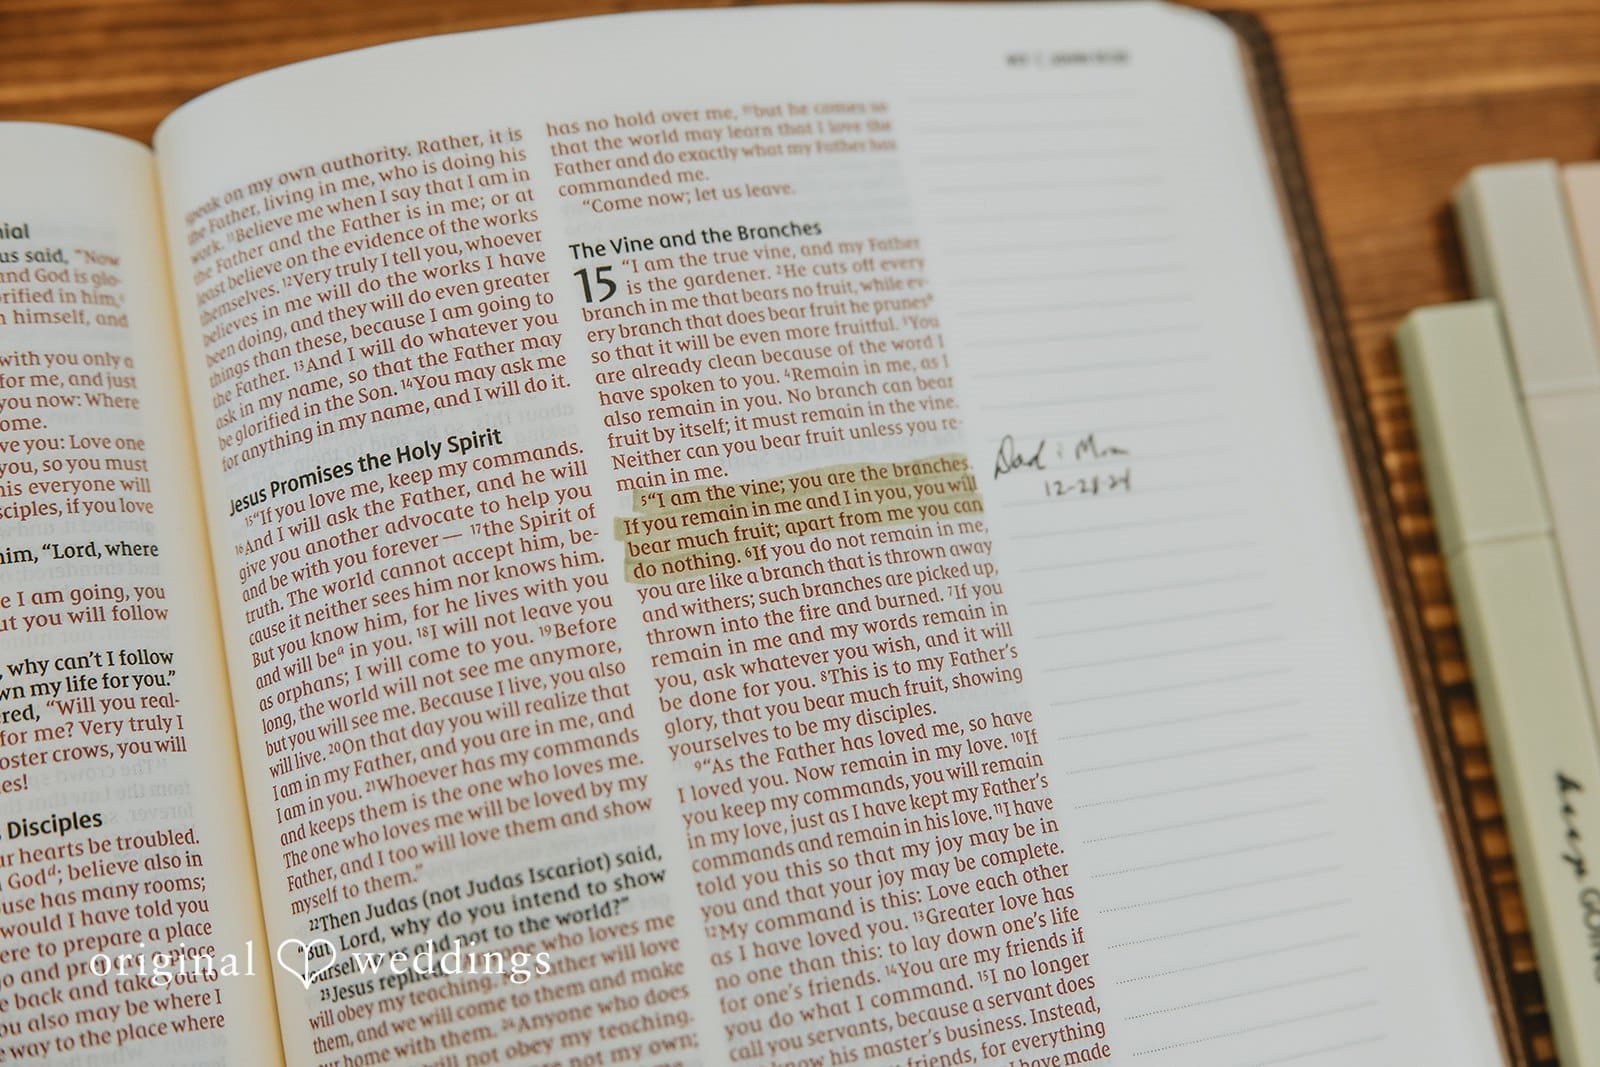 nial
us said, "Now
and God is glo-
rified in him,
n himself, and
with you only a
for me, and just
you now: Where
ome.
ve you: Love one
you, so you must
his everyone will
sciples, if you love
him, "Lord, where
e I am going, you
ut you will follow
, why can't I follow
wn my life for you."
red, "Will you real-
for me? Very truly I
oster crows, you will
es!
Disciples
ur hearts be troubled.
God d; believe also in
use has many rooms;
would I have told you
ere to prepare a place
o and take you to
e back and
ou also may be where I
e way to the place where
speak on my own authority. Rather, it is
the Father, living in me, who is doing his
work. 11Believe me when I say that I am in
the Father and the Father is in me; or at
least believe on the evidence of the works
themselves. 12Very truly I tell you, whoever
believes in me will do the works I have
been doing, and they will do even greater
things than these, because I am going to
the Father. 13And I will do whatever you
ask in my name, so that the Father may
be glorified in the Son. 14You may ask me
for anything in my name, and I will do it.
Jesus Promises the Holy Spirit
15"If you love me, keep my commands.
16And I will ask the Father, and he will
give you another advocate to help you
and be with you forever— 17the Spirit of
truth. The world cannot accept him, be-
cause it neither sees him nor knows him.
But you know him, for he lives with you
and will be a in you. 18I will not leave you
as orphans; I will come to you. 19Before
long, the world will not see me anymore,
but you will see me. Because I live, you also
will live. 20On that day you will realize that
I am in my Father, and you are in me, and
I am in you. 21Whoever has my commands
and keeps them is the one who loves me.
The one who loves me will be loved by my
Father, and I too will love them and show
myself to them."
22Then Judas (not Judas Iscariot) said,
"But, Lord, why do you intend to show
yourself to us and not to the world?"
23Jesus replied, "Anyone who loves me
will obey my teaching. My Father will love
them, and we will come to them and make
our home with them. 24Anyone who does
will not obey my teaching.
are not my own;
has no hold over me, 31but he comes so
that the world may learn that I love the
Father and do exactly what my Father has
commanded me.
"Come now; let us leave.
The Vine and the Branches
15 "I am the true vine, and my Father
is the gardener. 2He cuts off every
branch in me that bears no fruit, while ev-
ery branch that does bear fruit he prunes a
so that it will be even more fruitful. 3You
are already clean because of the word I
have spoken to you. 4Remain in me, as I
also remain in you. No branch can bear
fruit by itself; it must remain in the vine.
Neither can you bear fruit unless you re-
main in me.
5"I am the vine; you are the branches.
If you remain in me and I in you, you will
bear much fruit; apart from me you can
do nothing. 6If you do not remain in me,
you are like a branch that is thrown away
and withers; such branches are picked up,
thrown into the fire and burned. 7If you
remain in me and my words remain in
you, ask whatever you wish, and it will
be done for you. 8This is to my Father's
glory, that you bear much fruit, showing
yourselves to be my disciples.
9"As the Father has loved me, so have
I loved you. Now remain in my love. 10If
you keep my commands, you will remain
in my love, just as I have kept my Father's
commands and remain in his love. 11I have
told you this so that my joy may be in
you and that your joy may be complete.
12My command is this: Love each other
as I have loved you. 13Greater love has
no one than this: to lay down one's life
for one's friends. 14You are my friends if
you do what I command. 15I no longer
call you servants, because a servant does
know his master's business. Instead,
friends, for everything
have made
Dad : Mom
12-28-24
keep GOING
original weddings